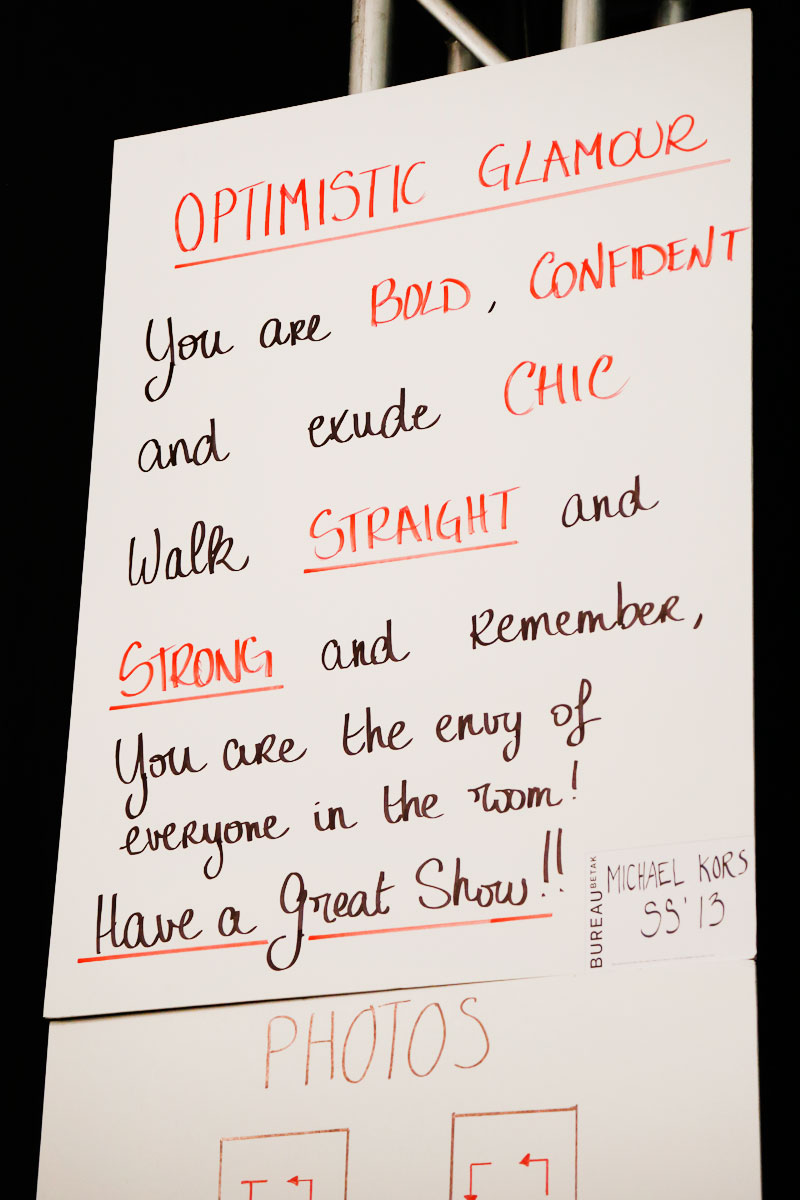 OPTIMISTIC GLAMOUR
You are BOLD, CONFIDENT
and exude CHIC
Walk STRAIGHT and
STRONG and Remember,
You are the envy of
everyone in the room!
Have a Great Show!!
BUREAU BETAK
MICHAEL KORS
SS'13
PHOTOS